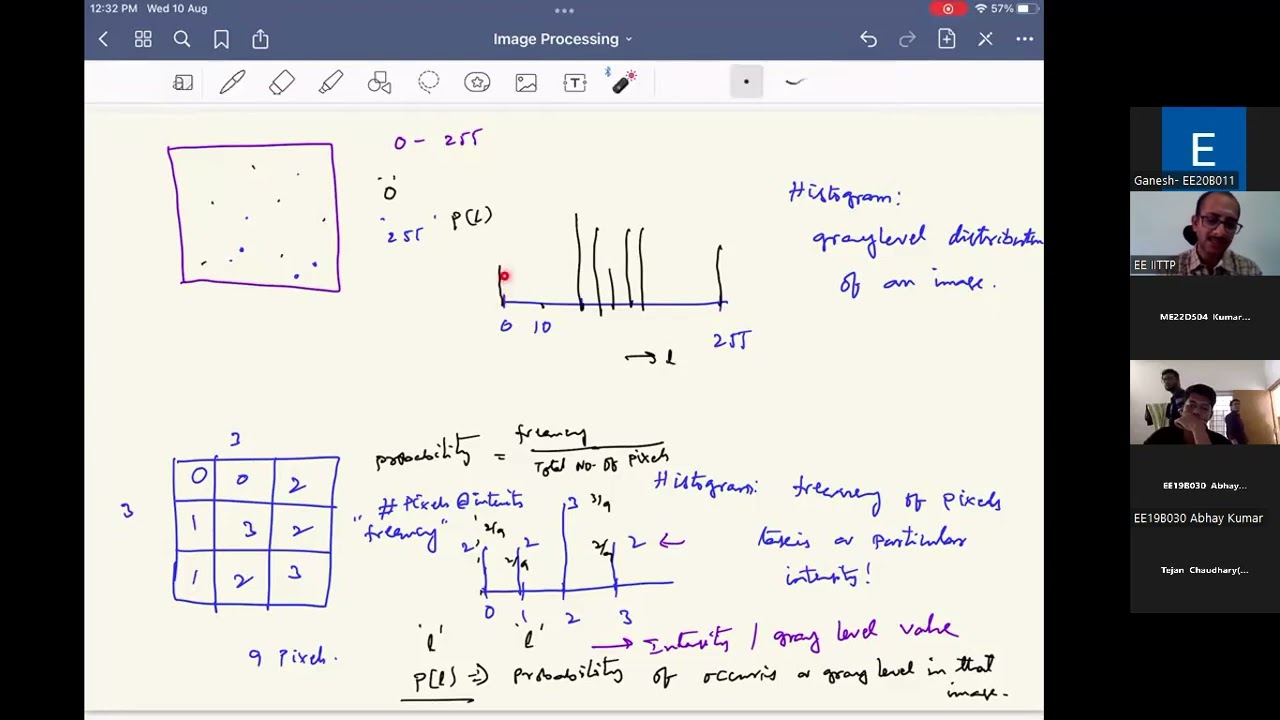 12:32 PM Wed 10 Aug
57%
Image Processing
0 - 255
0
255
P(l)
0 10 255
→ l
Histogram:
graylevel distribution
of an image.
3
3
0 0 2
1 3 2
1 2 3
9 Pixel.
probability = frequency
Total No. of pixels
# pixels @ intensity
"frequency"
2 2/9
2/9 2
3 3/9
2/9 2 ←
0 1 2 3
'l' 'l' → Intensity / gray level value
Histogram: frequency of pixels
particular
intensity!
P(l) ⇒ probability of occuris a gray level in that
image.
E
Ganesh- EE20B011
EE IITTP
ME22D504 Kumar...
EE19B030 Abhay...
EE19B030 Abhay Kumar
Tejan Chaudhary(...